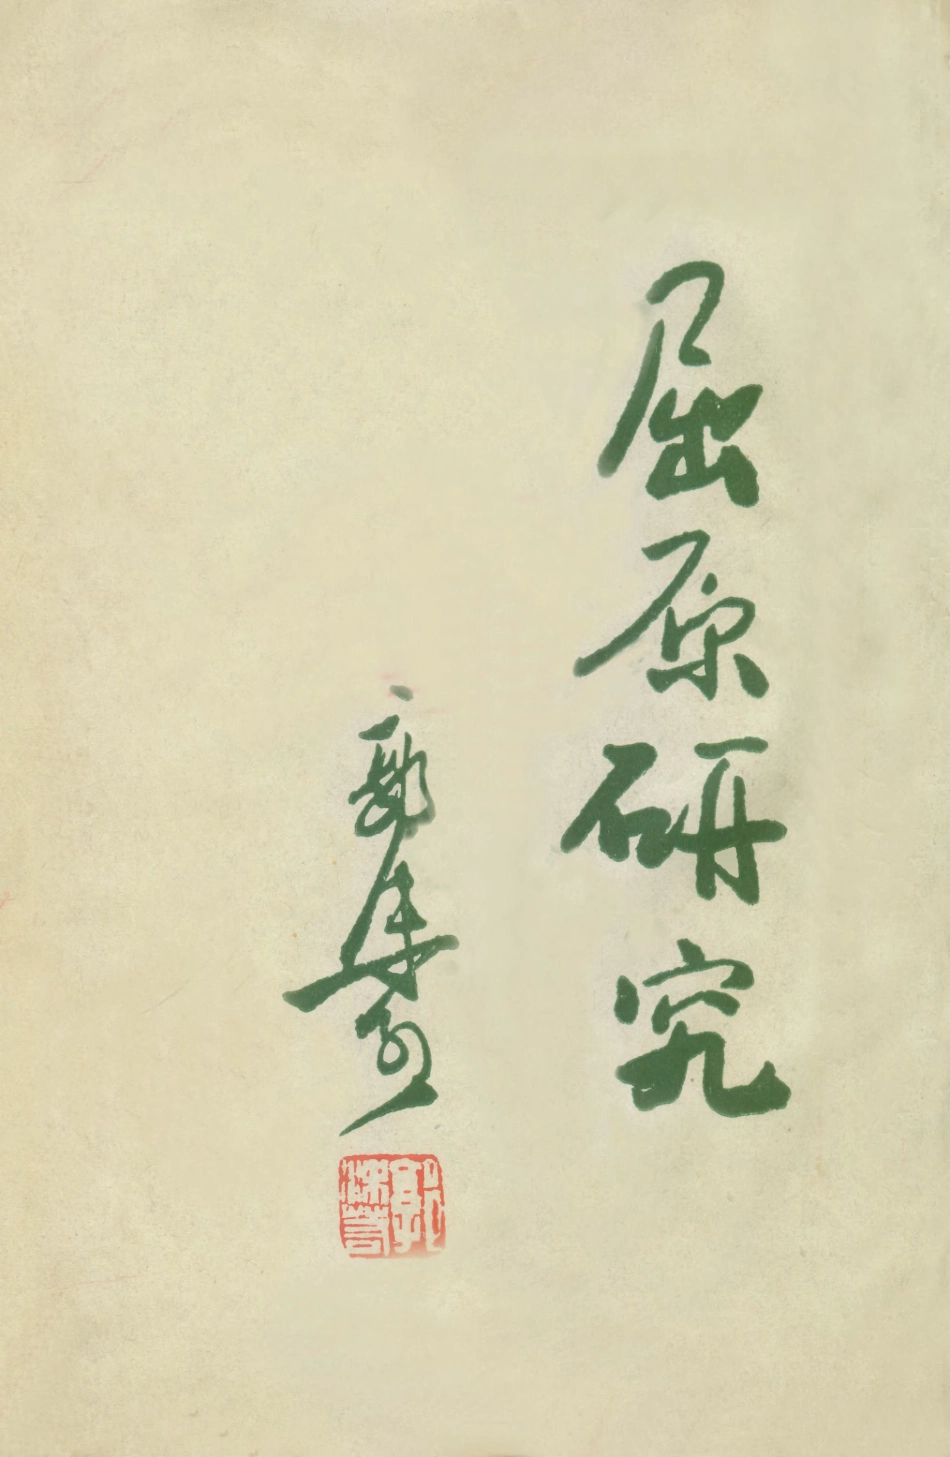 屈原研究
郭沫若
郭沫若